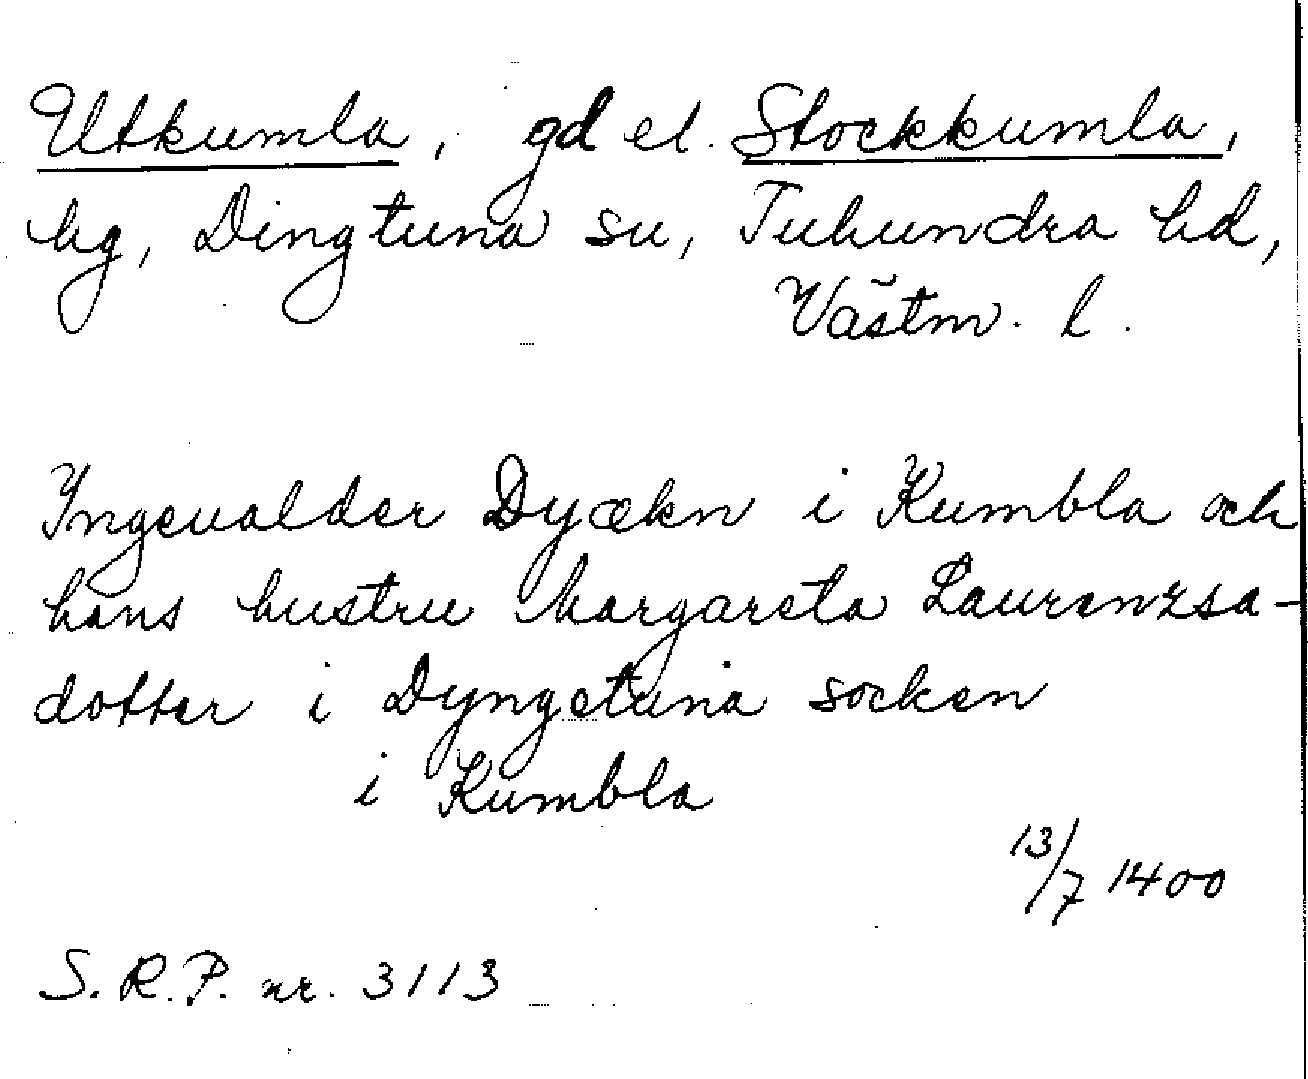 Utkumla, gd el. Stockkumla,
hg, Dingtuna sn, Tuhundra hd,
Västm. l.
Yngevalder Dyækn i Kumbla och
hans hustru Margareta Laurenzsa-
dotter i Dyngetuna socken
i Kumbla
13/7 1400
S.R.P. nr. 3113